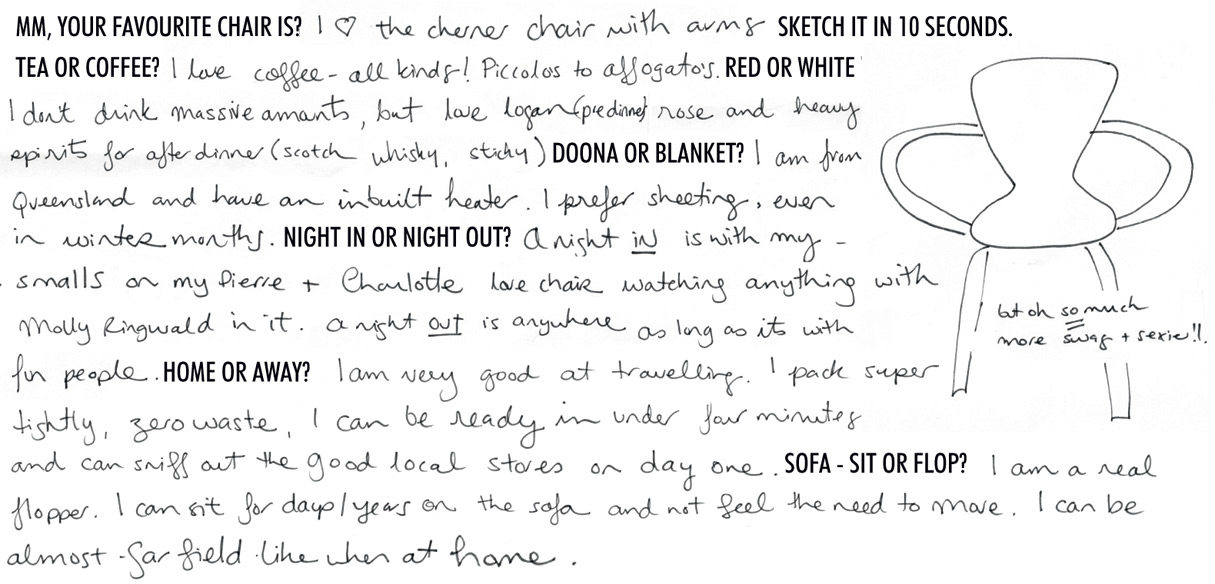 MM, YOUR FAVOURITE CHAIR IS? I ♡ the cherner chair with arms SKETCH IT IN 10 SECONDS.
TEA OR COFFEE? I love coffee - all kinds! Piccolos to affogato's. RED OR WHITE
I don't drink massive amants, but love logan (predinner) rose and heavy
spirits for after dinner (scotch whisky, sticky) DOONA OR BLANKET? I am from
Queensland and have an inbuilt heater. I prefer sheeting, even
in winter months. NIGHT IN OR NIGHT OUT? A night in is with my -
smalls on my Pierre + Charlotte love chair watching anything with
Molly Ringwald in it. A night out is anywhere as long as its with
fun people. HOME OR AWAY? I am very good at travelling. I pack super
tightly, zero waste, I can be ready in under four minutes
and can sniff out the good local stores on day one. SOFA - SIT OR FLOP? I am a real
flopper. I can sit for days/years on the sofa and not feel the need to move. I can be
almost - Garfield - like when at home.
but oh so much
more swag + sexie!!.